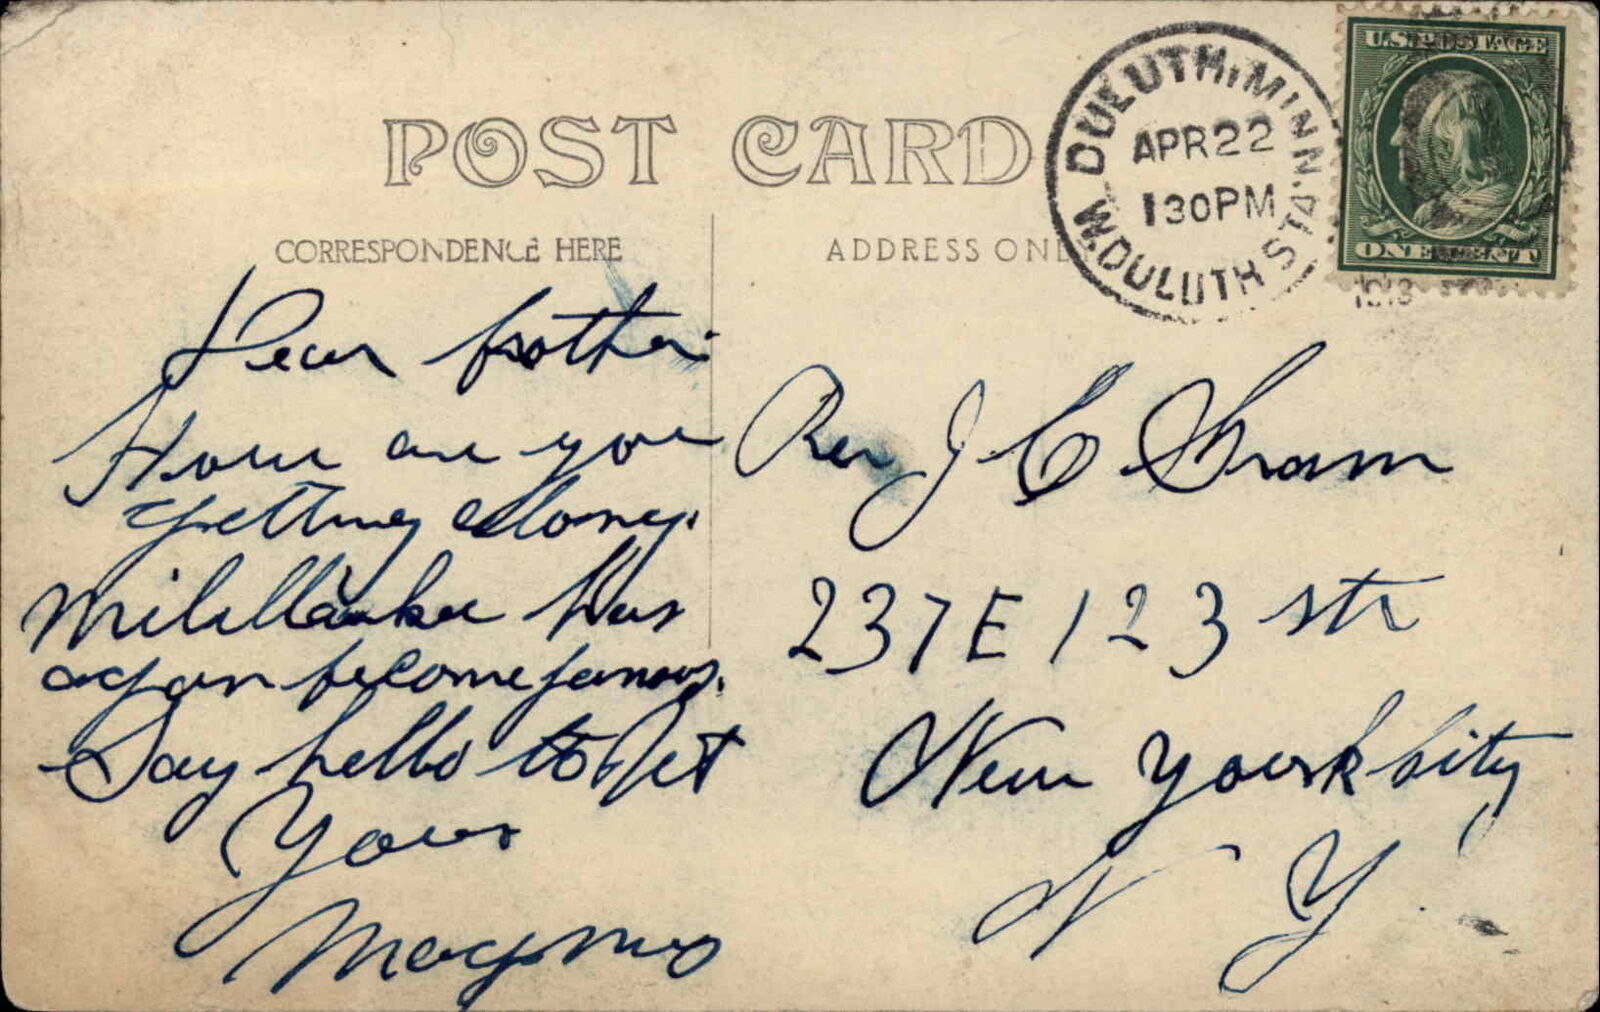 POST CARD
CORRESPONDENCE HERE
ADDRESS ONL
W. DULUTH, MINN.
APR 22
1 30 PM
W. DULUTH STA.
1913
U.S. POSTAGE
ONE CENT
Dear brother.
How are you
getting along.
has
again become famous.
Say hello to Net
Yours
Magnus
Rev J C
237 E 123 str
New Yourk City
N Y